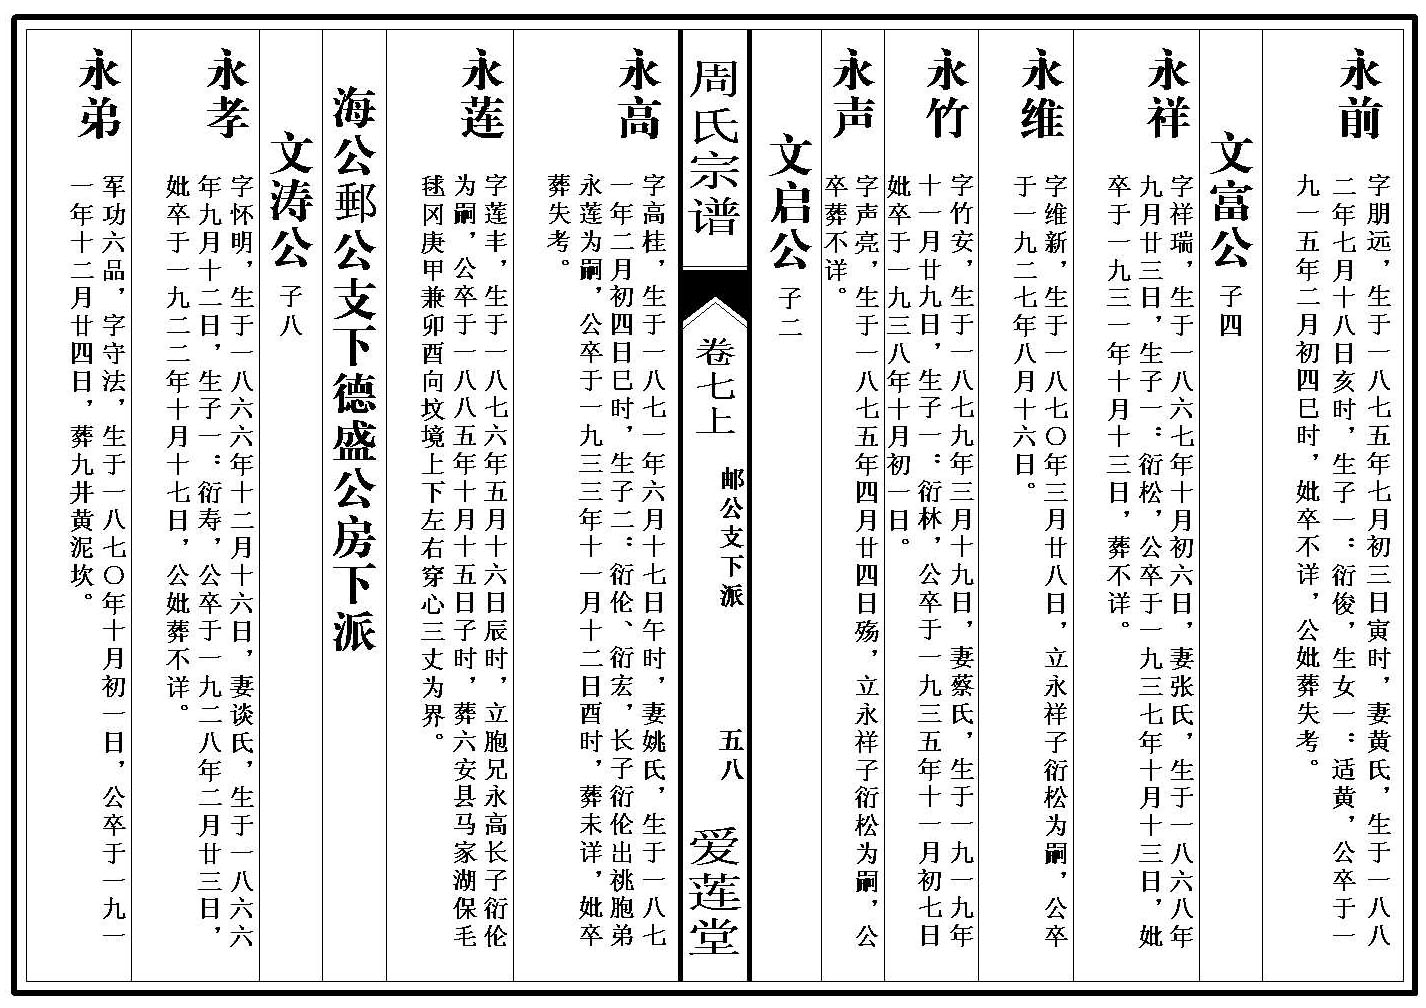 永前
字朋远，生于一八七五年七月初三日寅时，妻黄氏，生于一八八
二年七月十八日亥时，生子一：衍俊，生女一：适黄，公卒于一
九一五年二月初四巳时，妣卒不详，公妣葬失考。
文富公 子四
永祥
字祥瑞，生于一八六七年十月初六日，妻张氏，生于一八六八年
九月廿三日，生子一：衍松，公卒于一九三七年十月十三日，妣
卒于一九三一年十月十三日，葬不详。
永维
字维新，生于一八七〇年三月廿八日，立永祥子衍松为嗣，公卒
于一九二七年八月十六日。
永竹
字竹安，生于一八七九年三月十九日，妻蔡氏，生于一九一九年
十一月廿九日，生子一：衍林，公卒于一九三五年十一月初七日
妣卒于一九三八年十月初一日。
永声
字声亮，生于一八七五年四月廿四日殇，立永祥子衍松为嗣，公
卒葬不详。
文启公 子二
周氏宗谱
卷七上
邮公支下派
五八
爱莲堂
永高
字高桂，生于一八七一年六月十七日午时，妻姚氏，生于一八七
一年二月初四日巳时，生子二：衍伦、衍宏，长子衍伦出祧胞弟
永莲为嗣，公卒于一九三三年十一月十二日酉时，葬未详，妣卒
葬失考。
永莲
字莲丰，生于一八七六年五月十六日辰时，立胞兄永高长子衍伦
为嗣，公卒于一八八五年十月十五日子时，葬六安县马家湖保毛
毬冈庚甲兼卯酉向坟境上下左右穿心三丈为界。
海公郵公支下德盛公房下派
文涛公 子八
永孝
字怀明，生于一八六六年十二月十六日，妻谈氏，生于一八六六
年九月十二日，生子一：衍寿，公卒于一九二八年二月廿三日，
妣卒于一九二二年十月十七日，公妣葬不详。
永弟
军功六品，字守法，生于一八七〇年十月初一日，公卒于一九一
一年十二月廿四日，葬九井黄泥坎。